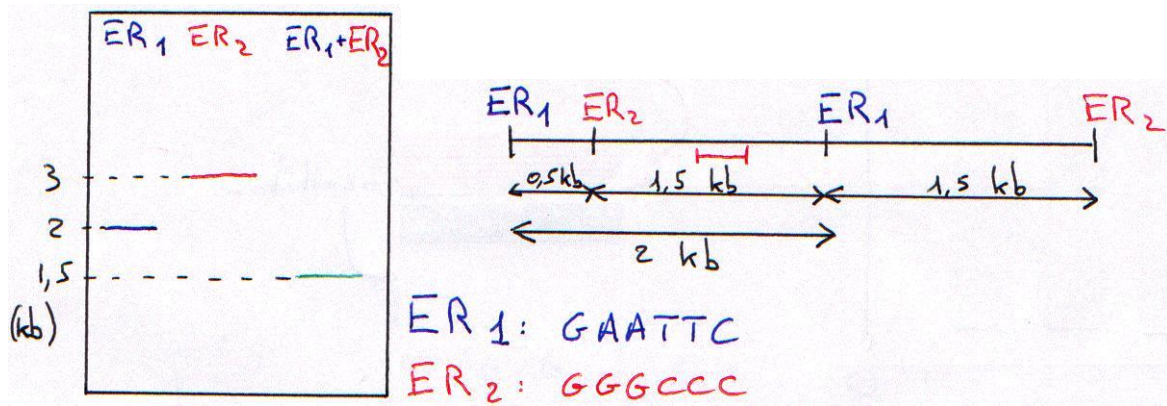 ER₁ ER₂ ER₁+ER₂
3
2
1,5
(kb)
ER₁ ER₂ ER₁ ER₂
0,5kb 1,5 kb 1,5 kb
2 kb
ER₁: GAATTC
ER₂: GGGCCC